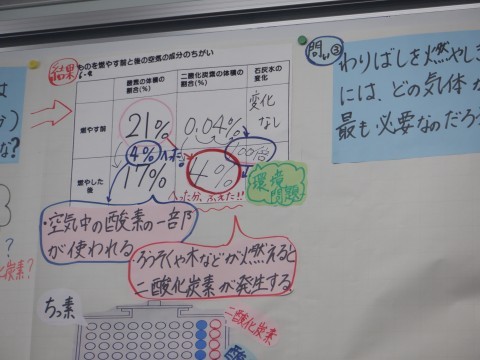 結果
ものを燃やす前と後の空気の成分のちがい
酸素の体積の
割合(%)
二酸化炭素の体積の
割合(%)
石灰水の
変化
燃やす前
21%
0.04%
変化
なし
4%
へった
100倍
燃やした
後
17%
4%
へった分、ふえた!!
環境
問題
・空気中の酸素の一部
が使われる
・ろうそくや木などが燃えると
二酸化炭素が発生する
ちっ素
二酸化炭素
酸
問い③
わりばしを燃やしき
には、どの気体が
最も必要なのだろ
は
分)
な?
?
炭素?